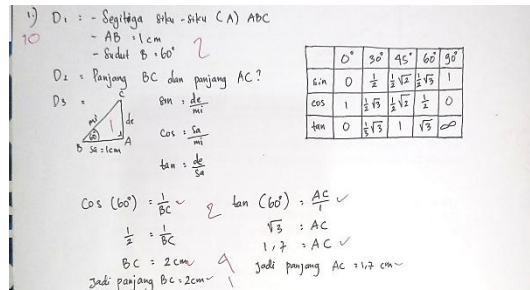 1.) D1 : - Segitiga siku-siku (A) ABC
10
- AB = 1 cm
- Sudut B = 60° 2
D2 = Panjang BC dan panjang AC?
D3 =
C
mi
de
60°
1
B sa = 1cm A
sin : de/mi
cos : sa/mi
tan : de/sa
0° 30° 45° 60° 90°
sin 0 1/2 1/2√2 1/2√3 1
cos 1 1/2√3 1/2√2 1/2 0
tan 0 1/3√3 1 √3 ∞
Cos (60°) = 1/BC
1/2 = 1/BC
BC = 2 cm
Jadi panjang BC = 2cm
2
4
1
tan (60°) = AC/1
√3 : AC
1,7 = AC
Jadi panjang AC = 1,7 cm